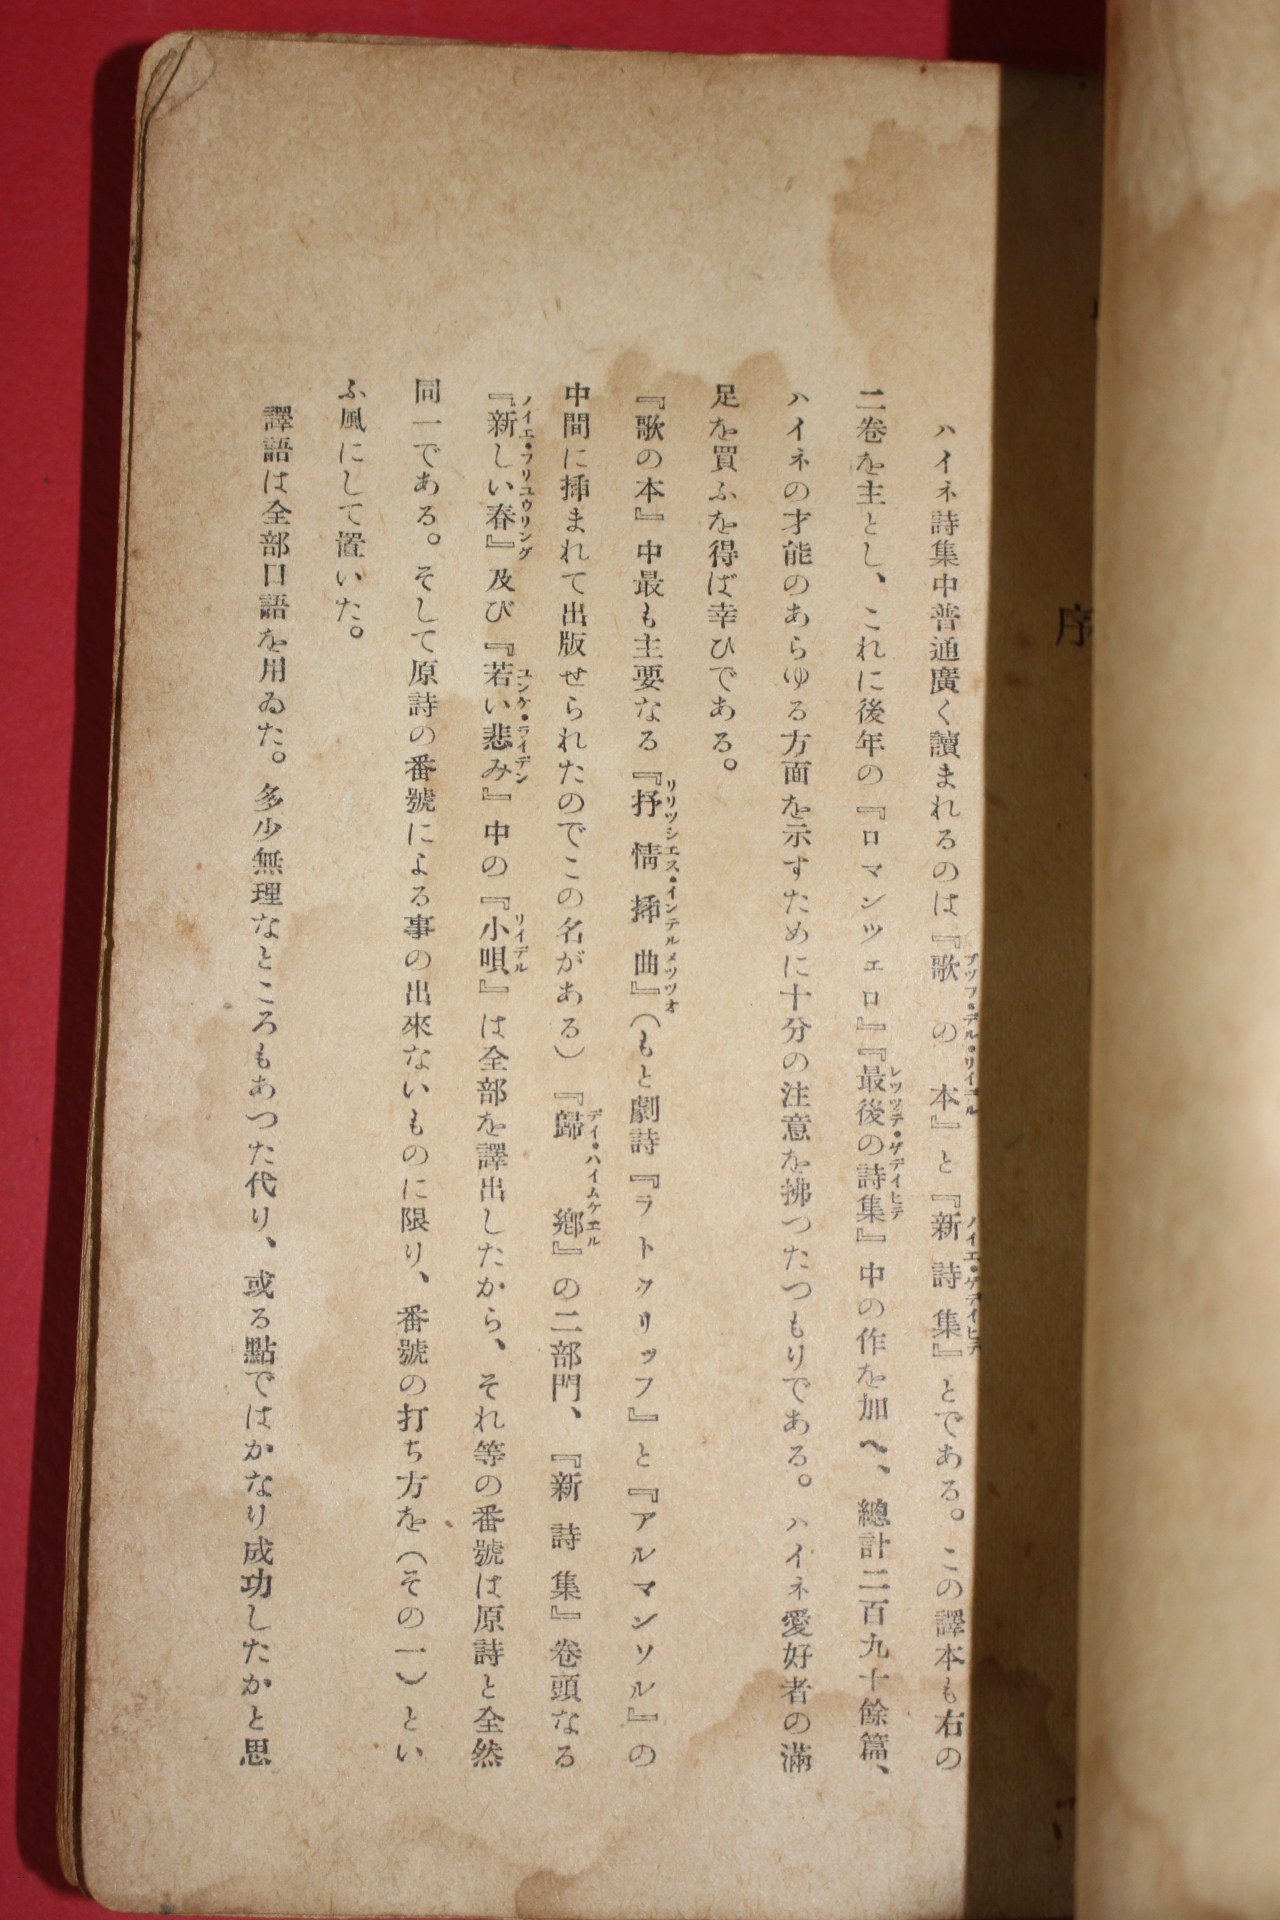 序
ハイネ詩集中普通廣く讀まれるのは『歌の本』と『新詩集』とである。この譯本も右の
ブツフ・デル・リイデル
ノイエ・ゲデイヒテ
二卷を主とし、これに後年の『ロマンツェロ』『最後の詩集』中の作を加へ、總計二百九十餘篇、
レツツテ・ゲデイヒテ
ハイネの才能のあらゆる方面を示すために十分の注意を拂つたつもりである。ハイネ愛好者の滿
足を買ふを得ば幸ひである。
『歌の本』中最も主要なる『抒情揷曲』（もと劇詩『ラトクリッフ』と『アルマンソル』の
リリツシエス・インテルメツツオ
中間に揷まれて出版せられたのでこの名がある）『歸鄉』の二部門、『新詩集』卷頭なる
デイ・ハイムケエル
『新しい春』及び『若い悲み』中の『小唄』は全部を譯出したから、それ等の番號は原詩と全然
ノイエ・フリユウリング
ユンゲ・ライデン
リイデル
同一である。そして原詩の番號による事の出來ないものに限り、番號の打ち方を（その一）とい
ふ風にして置いた。
譯語は全部口語を用ゐた。多少無理なところもあつた代り、或る點ではかなり成功したかと思